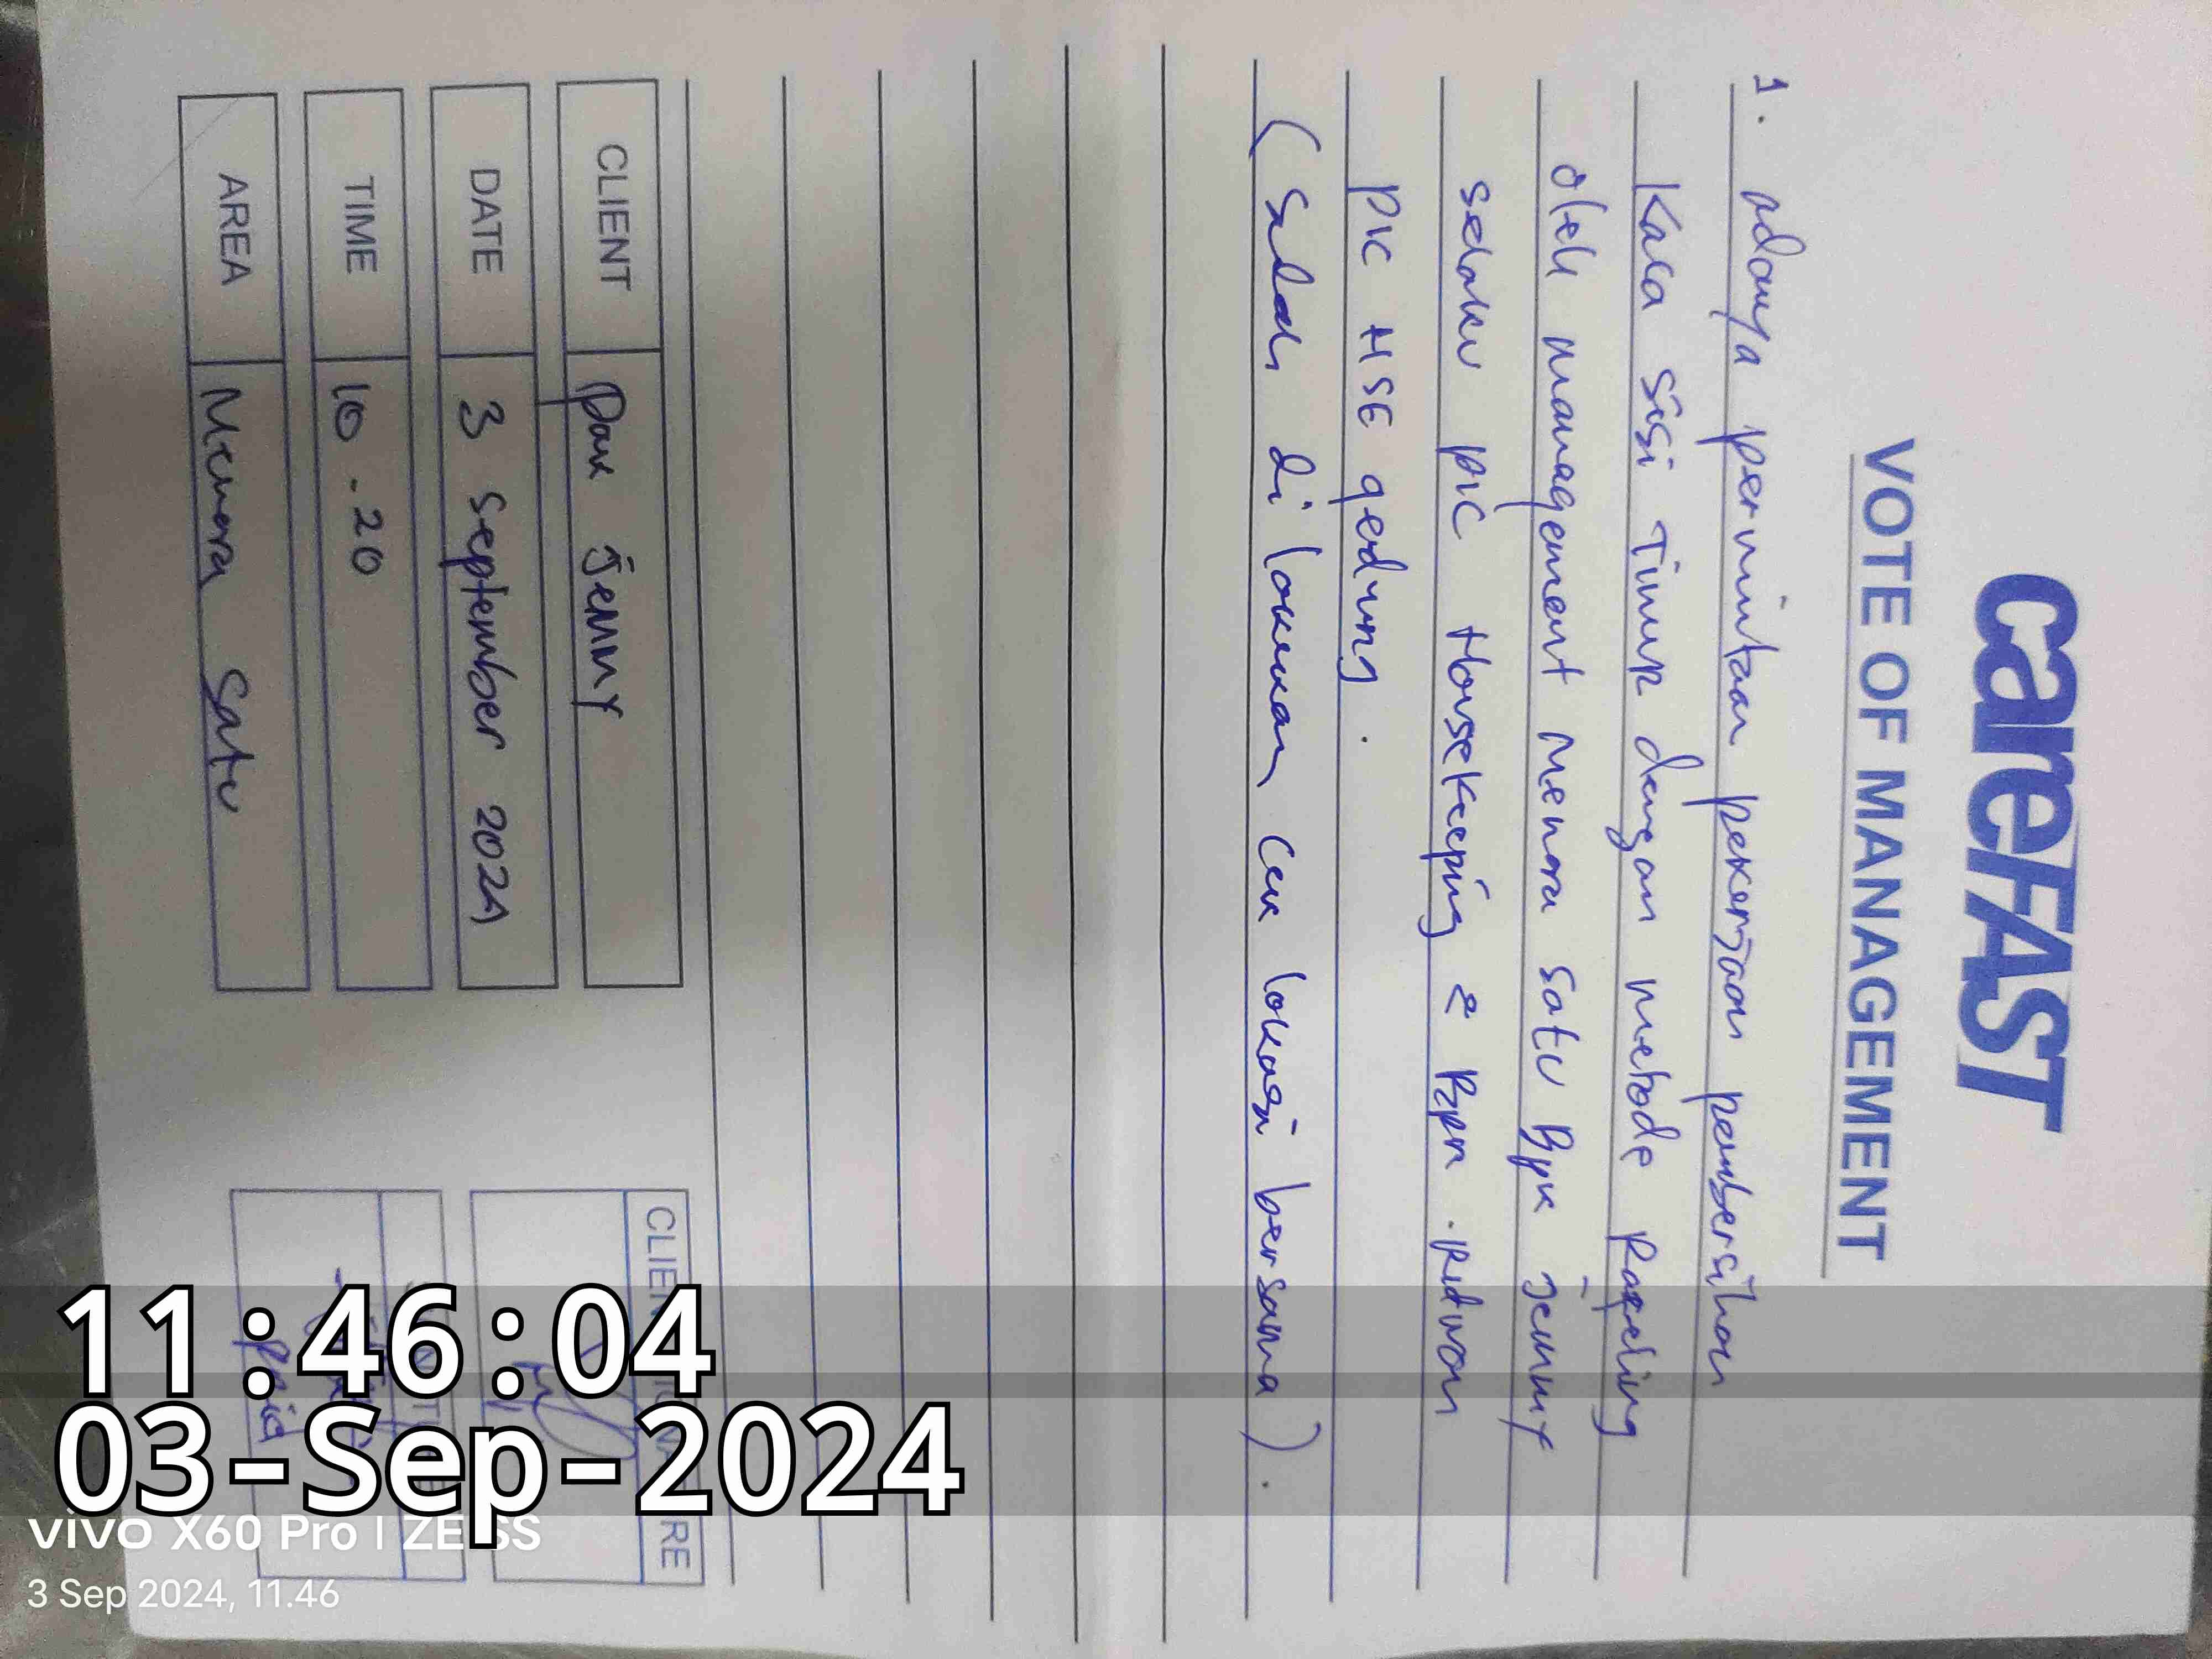 careFAST
VOTE OF MANAGEMENT
1. Adanya permintaan pekerjaan pembersihan
Kaca sisi Timur dengan metode Rapeling
oleh management Menara Satu Bpk Jemmy
selaku PIC Housekeeping & Bpk. Ridwan
PIC HSE gedung.
(Sudah di lakukan cek lokasi bersama).
CLIENT Pak Jemmy
DATE 3 September 2024
TIME 10.20
AREA Menara Satu
CLIENT SIGNATURE
11:46:04
03-Sep-2024
vivo X60 Pro | ZEISS
3 Sep 2024, 11.46